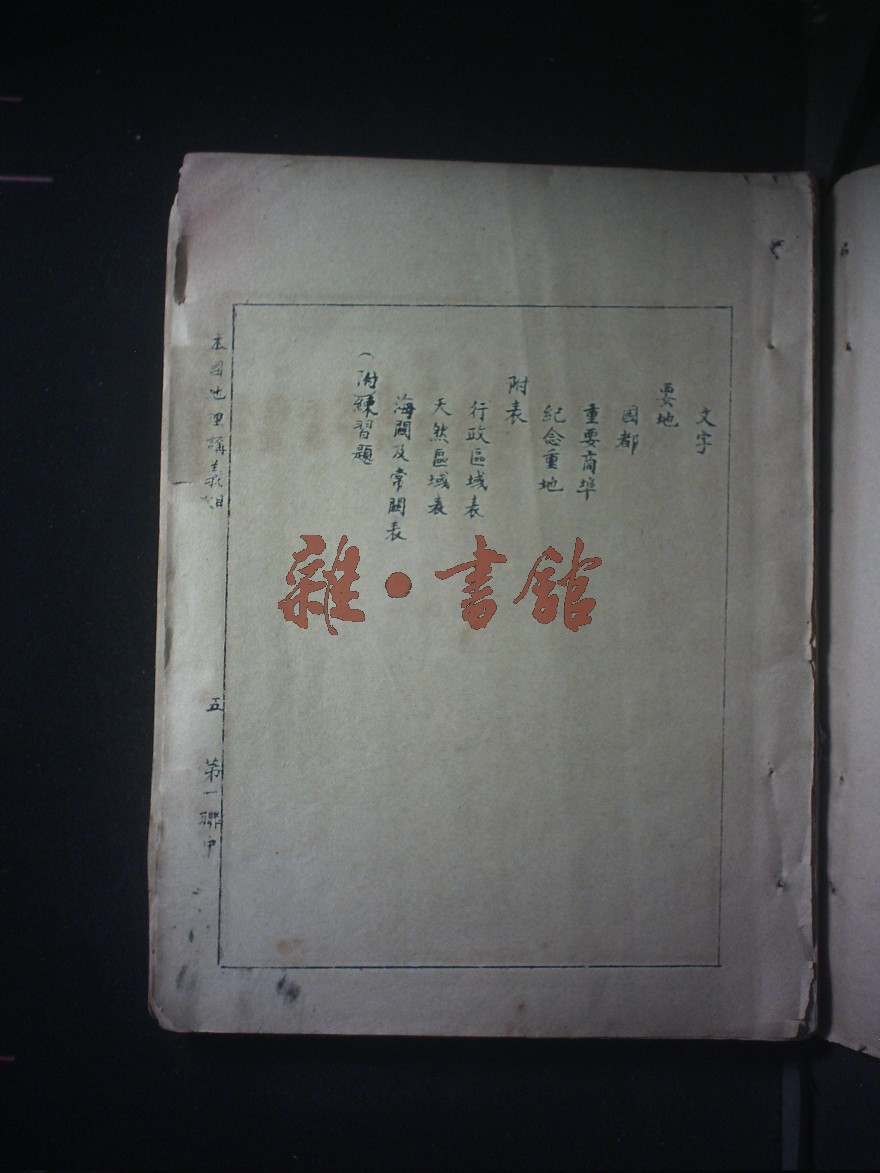 文字
要地
國都
重要商埠
紀念重地
附表
行政區域表
天然區域表
海關及常關表
（附練習題
本國地理講義
五
第一聯中
雜·書館